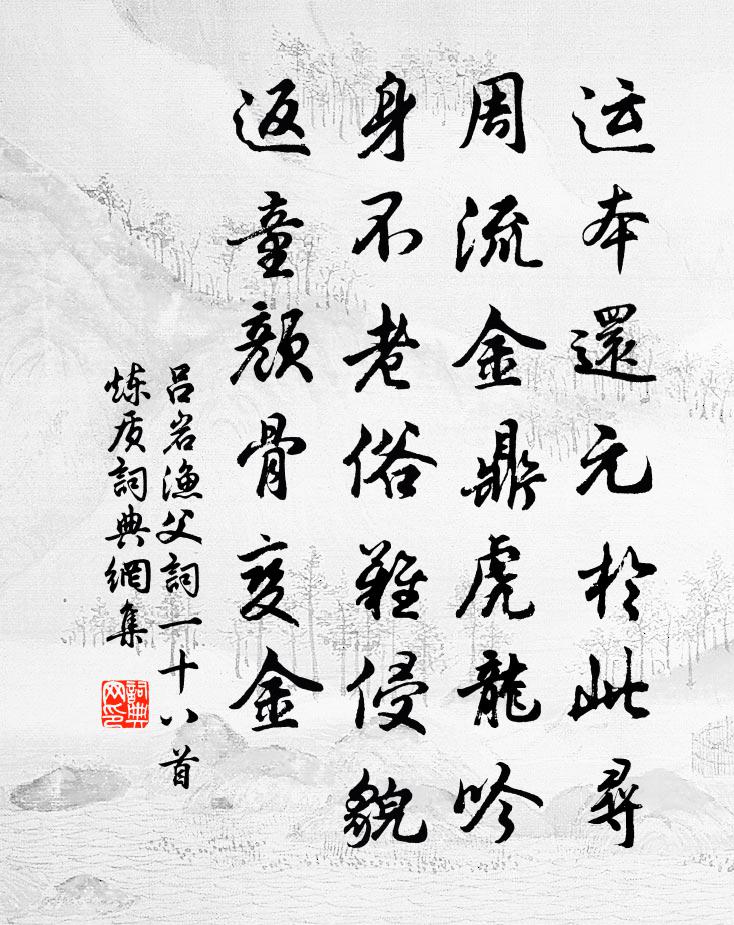 运本還元於此尋
周流金鼎虎龍吟
身不老俗難侵貌
返童顏骨變金
吕岩漁父詞一十八首
炼质詞典網集
詞典
网印